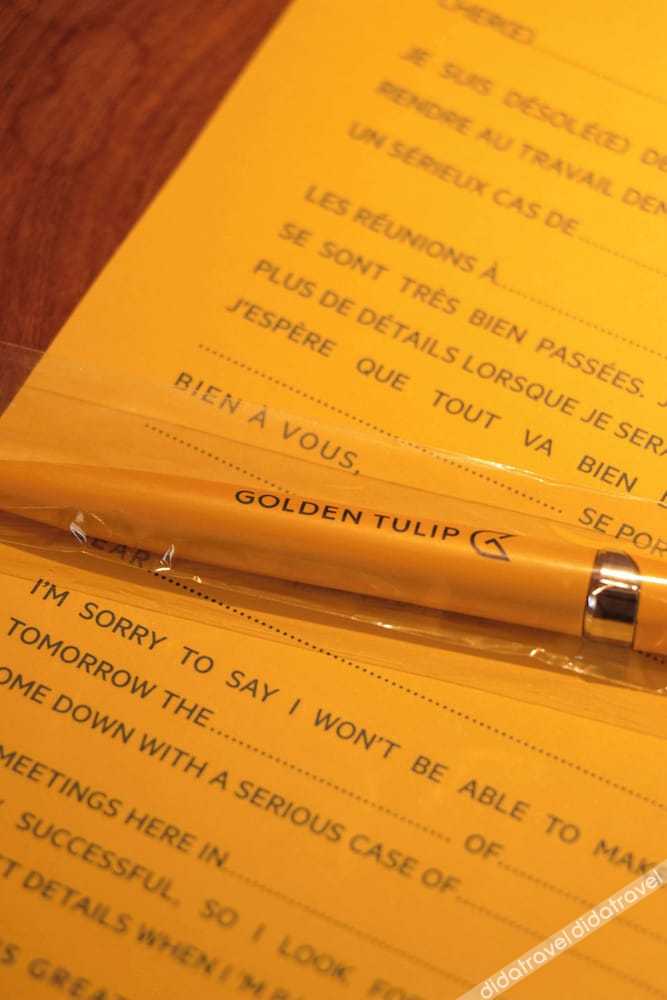 CHER(E)
JE SUIS DÉSOLÉ(E) D
RENDRE AU TRAVAIL
UN SÉRIEUX CAS DE
LES RÉUNIONS À
SE SONT TRÈS BIEN PASSÉES. J
PLUS DE DÉTAILS LORSQUE JE SERA
J'ESPÈRE QUE TOUT VA BIEN
SE POR
BIEN À VOUS,
GOLDEN TULIP
EAR
I'M SORRY TO SAY I WON'T BE ABLE TO MAK
TOMORROW THE OF
OME DOWN WITH A SERIOUS CASE OF
MEETINGS HERE IN
SUCCESSFUL, SO I LOOK FO
T DETAILS WHEN I'M
S GREAT
didatravel didatravel